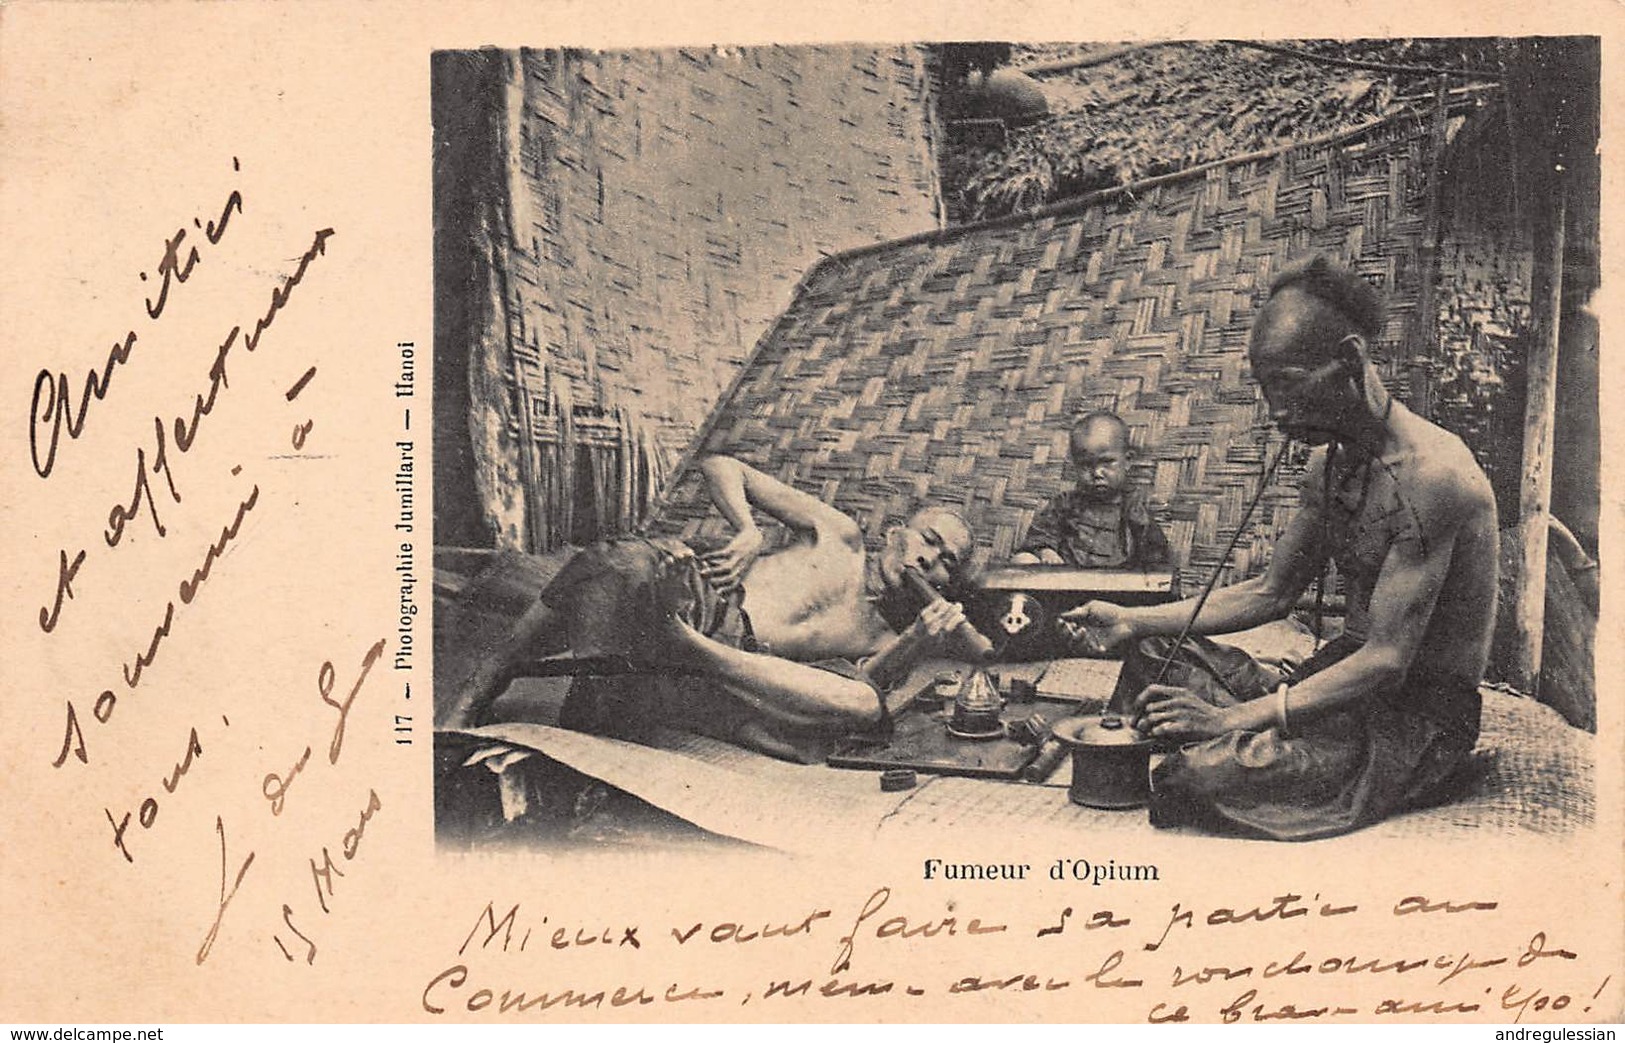 Amitiés
et affectueux
souvenir à
tous.
15 Mars
117 — Photographie Jumillard — Hanoi
Fumeur d'Opium
Mieux vaut faire sa partie au
Commerce, même avec le ronchonnage de
ce brave ami
andregulessian